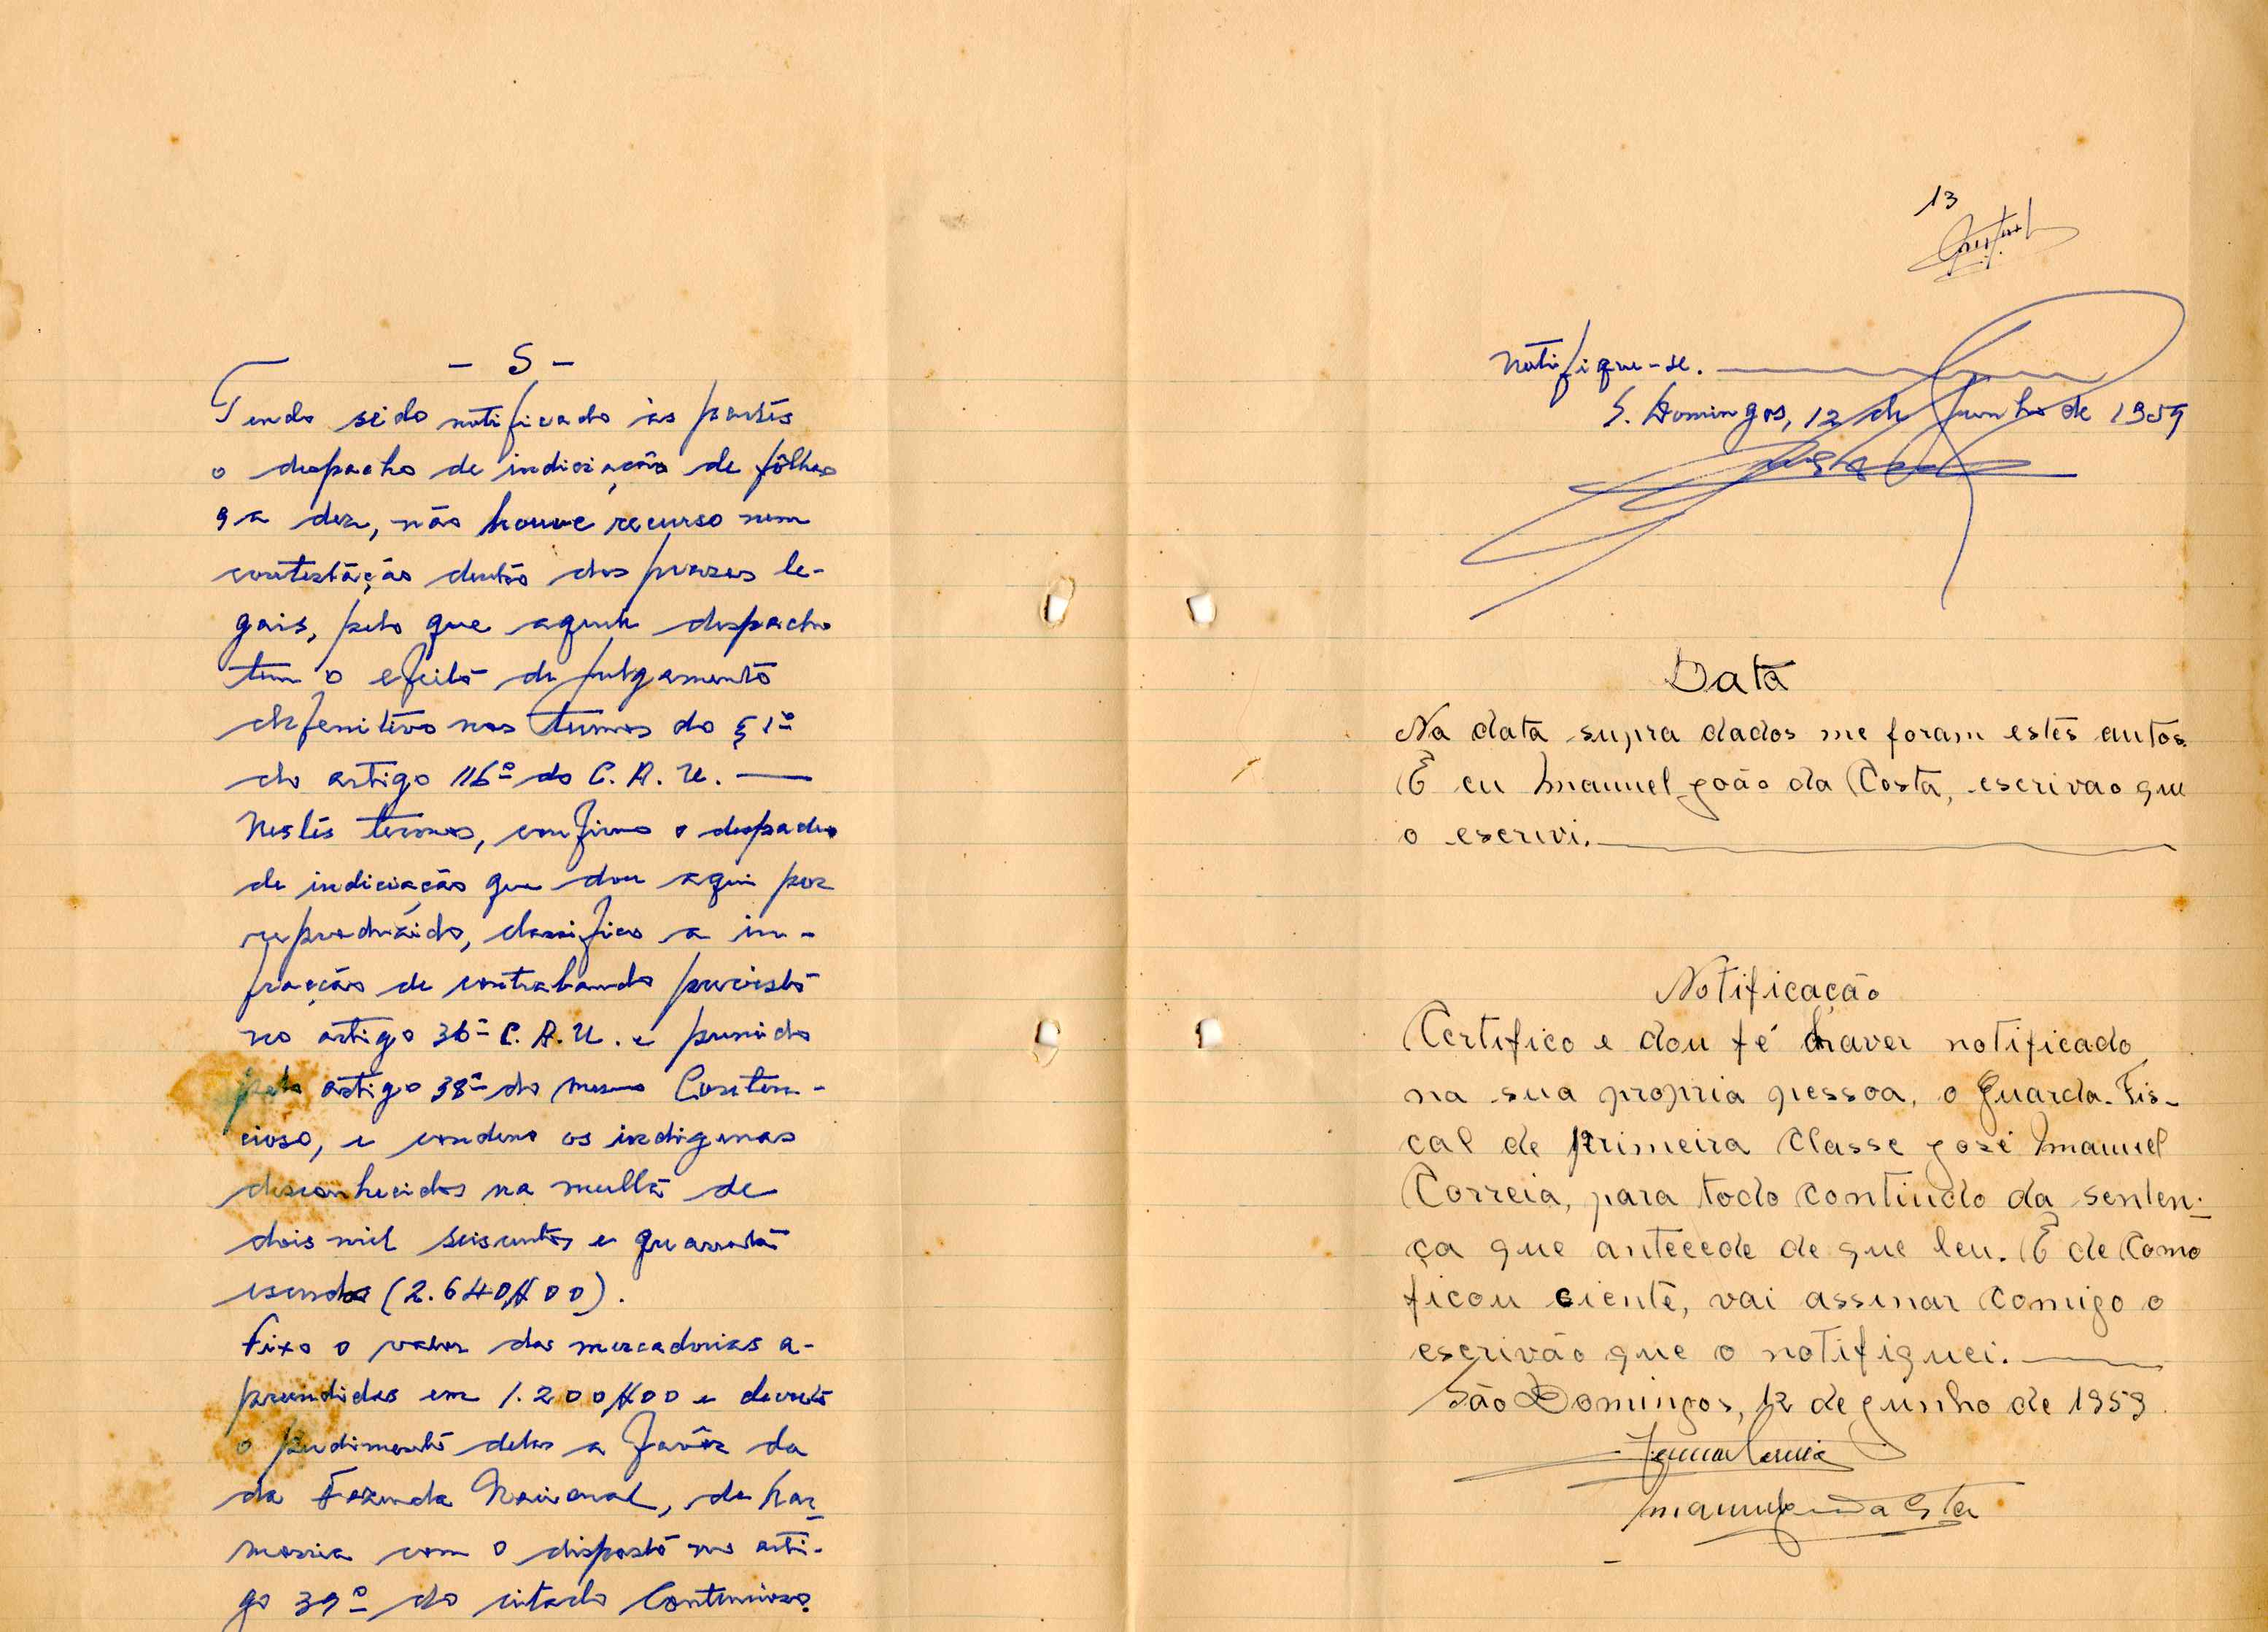 - S -
Tendo sido notificado às partes
o despacho de indiciação de fôlhas
9 a dez, não houve recurso nem
contestação dentro dos prazos le-
gais, pelo que aquele despacho
tem o efeito de julgamento
defenitivo nos termos do § 1º
do artigo 116º do C. A. U.
Nestes termos, confirmo o despacho
de indiciação que dou aqui por
reproduzido, classifico a in-
fracção de contrabando previsto
no artigo 36º C. A. U. e punido
pelo artigo 38º do mesmo Conten-
cioso, e condeno os indigenas
desconhecidos na multa de
dois mil seiscentos e quarenta
escudos (2.640$00).
Fixo o valor das mercadorias a-
preendidas em 1.200$00 e decreto
o perdimento delas a favôr da
da Fazenda Nacional, de har-
monia com o disposto no arti-
go 39º do citado Contencioso.
13
Notifique-se.
S. Domingos, 12 de Junho de 1959
Data
Na data supra dados me foram estes autos.
E eu Manuel João da Costa, escrivao que
o escrivi.
Notificação
Certifico e dou fé haver notificado
na sua propria pessoa, o Guarda-Fis-
cal de primeira Classe José Manuel
Correia, para todo Contiudo da senten-
ça que antecede de que leu. E de Como
ficou ciente, vai assinar Comigo o
escrivão que o notifiquei.
São Domingos, 12 de Junho de 1959.